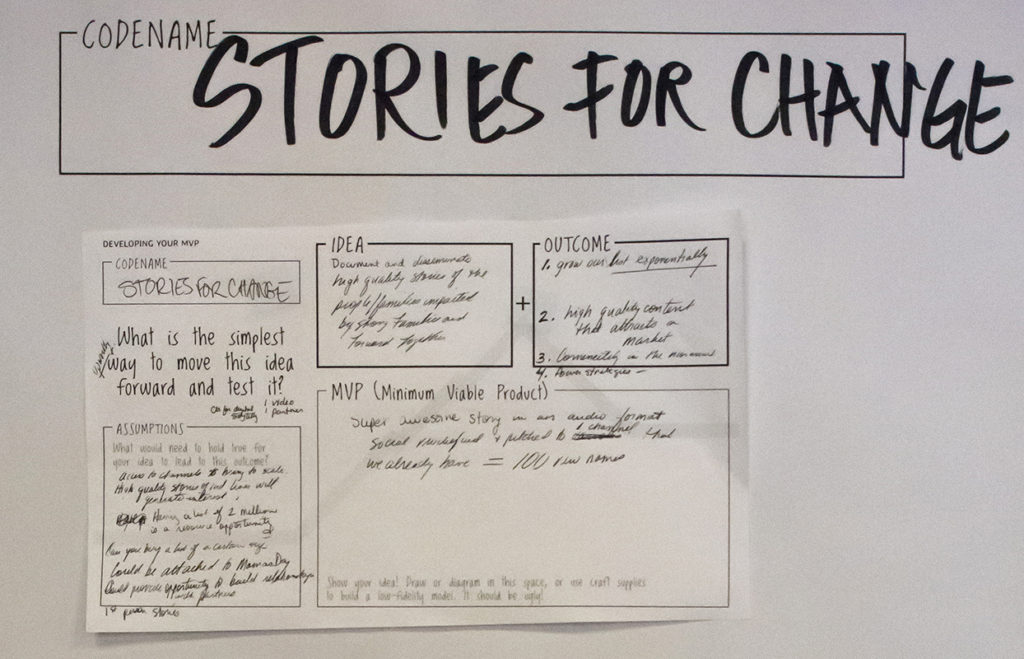 CODENAME
STORIES FOR CHANGE
DEVELOPING YOUR MVP
CODENAME
STORIES FOR CHANGE
What is the simplest
way to move this idea
forward and test it?
1 video
1 partner
ASSUMPTIONS
What would need to hold true for
your idea to lead to this outcome?
access to channels to bring to scale
High quality stories of ind lives will
generate interest
Having a list of 2 million
is a resource opportunity
Can you buy a list of a certain
Could be attached to Mamas Day
Could provide opportunity to build relationships
with partners
1st person stories
IDEA
Document and disseminate
high quality stories of the
people/families impacted
by Strong Families and
Forward Together
+
OUTCOME
1. grow our list exponentially
2. high quality content
that attracts a
market
3. Connecting to the
4. Power strategies —
MVP (Minimum Viable Product)
Super awesome story in an audio format
social + pitched to 1 channel that
we already have = 100 new names
Show your idea! Draw or diagram in this space, or use craft supplies
to build a low-fidelity model. It should be ugly!